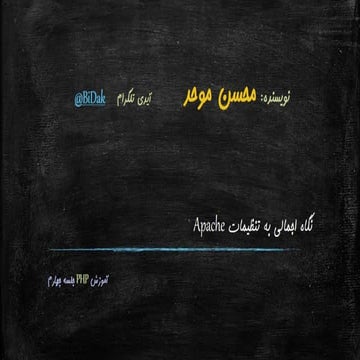 نویسنده: محسن موحد آیدی تلگرام @BiDak
نگاه اجمالی به تنظیمات Apache
آموزش PHP جلسه چهارم